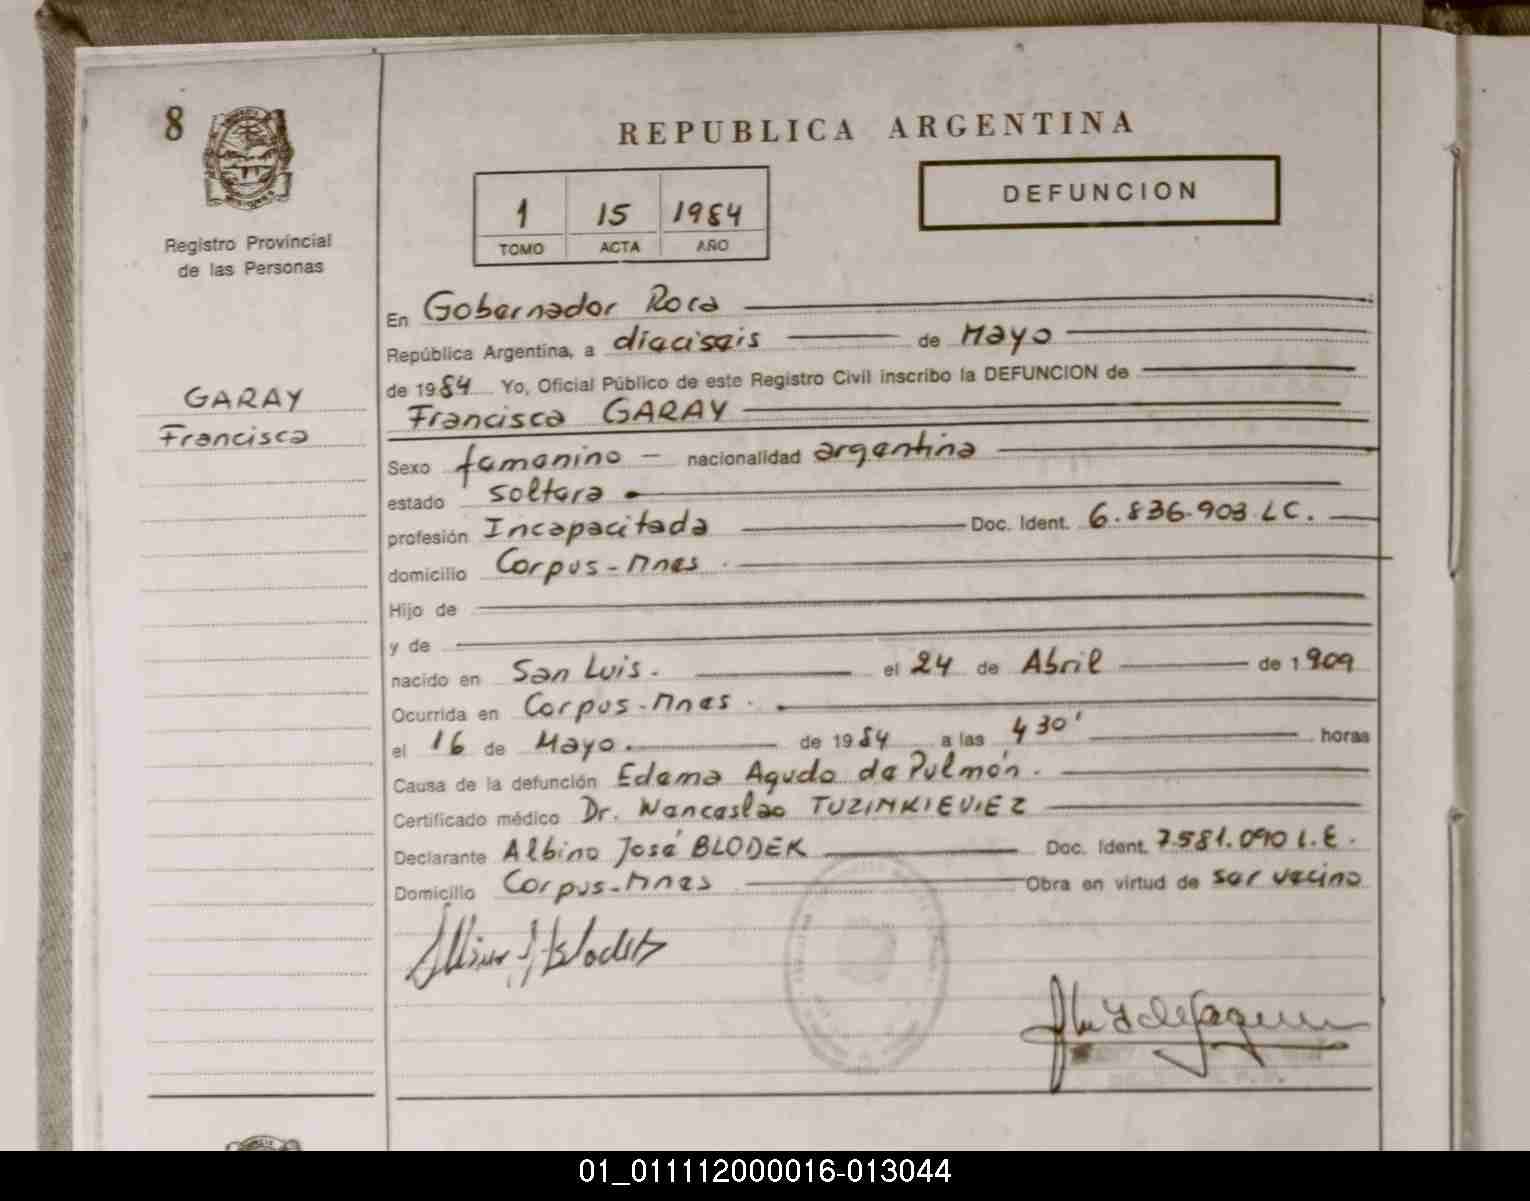 8
REPUBLICA ARGENTINA
1 15 1984
TOMO ACTA AÑO
DEFUNCION
Registro Provincial
de las Personas
GARAY
Francisca
En Gobernador Roca
República Argentina, a dieciseis de Mayo
de 1984 Yo, Oficial Público de este Registro Civil inscribo la DEFUNCION de
Francisca GARAY
Sexo femenino nacionalidad argentina
estado soltera
profesión Incapacitada Doc. Ident. 6.836.903 LC.
domicilio Corpus-Mnes
Hijo de
y de
nacido en San Luis. el 24 de Abril de 1909
Ocurrida en Corpus-Mnes.
el 16 de Mayo. de 1984 a las 4 30' horas
Causa de la defunción Edema Agudo de Pulmón.
Certificado médico Dr. Wenceslao TUZINKIEVIEZ
Declarante Albino José BLODEK Doc. Ident. 7.581.090 L.E.
Domicilio Corpus-Mnes Obra en virtud de ser vecino
01_011112000016-013044